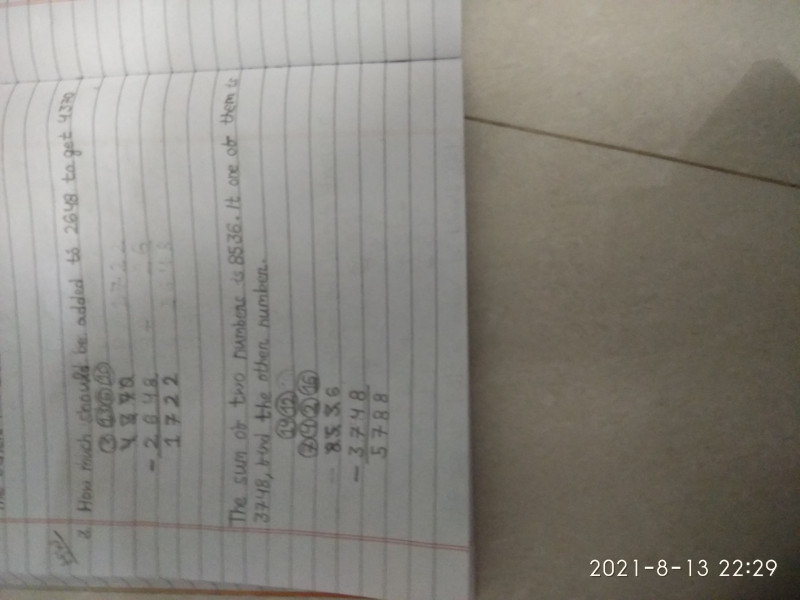 2. How much should be added to 2648 to get 4370
3 13 6 10
4 3 7 0
- 2 6 4 8
1 7 2 2
The sum of two numbers is 8536. If one of them is
3748, find the other number.
14 12
7 4 2 16
8 5 3 6
- 3 7 4 8
5 7 8 8
2021-8-13 22:29